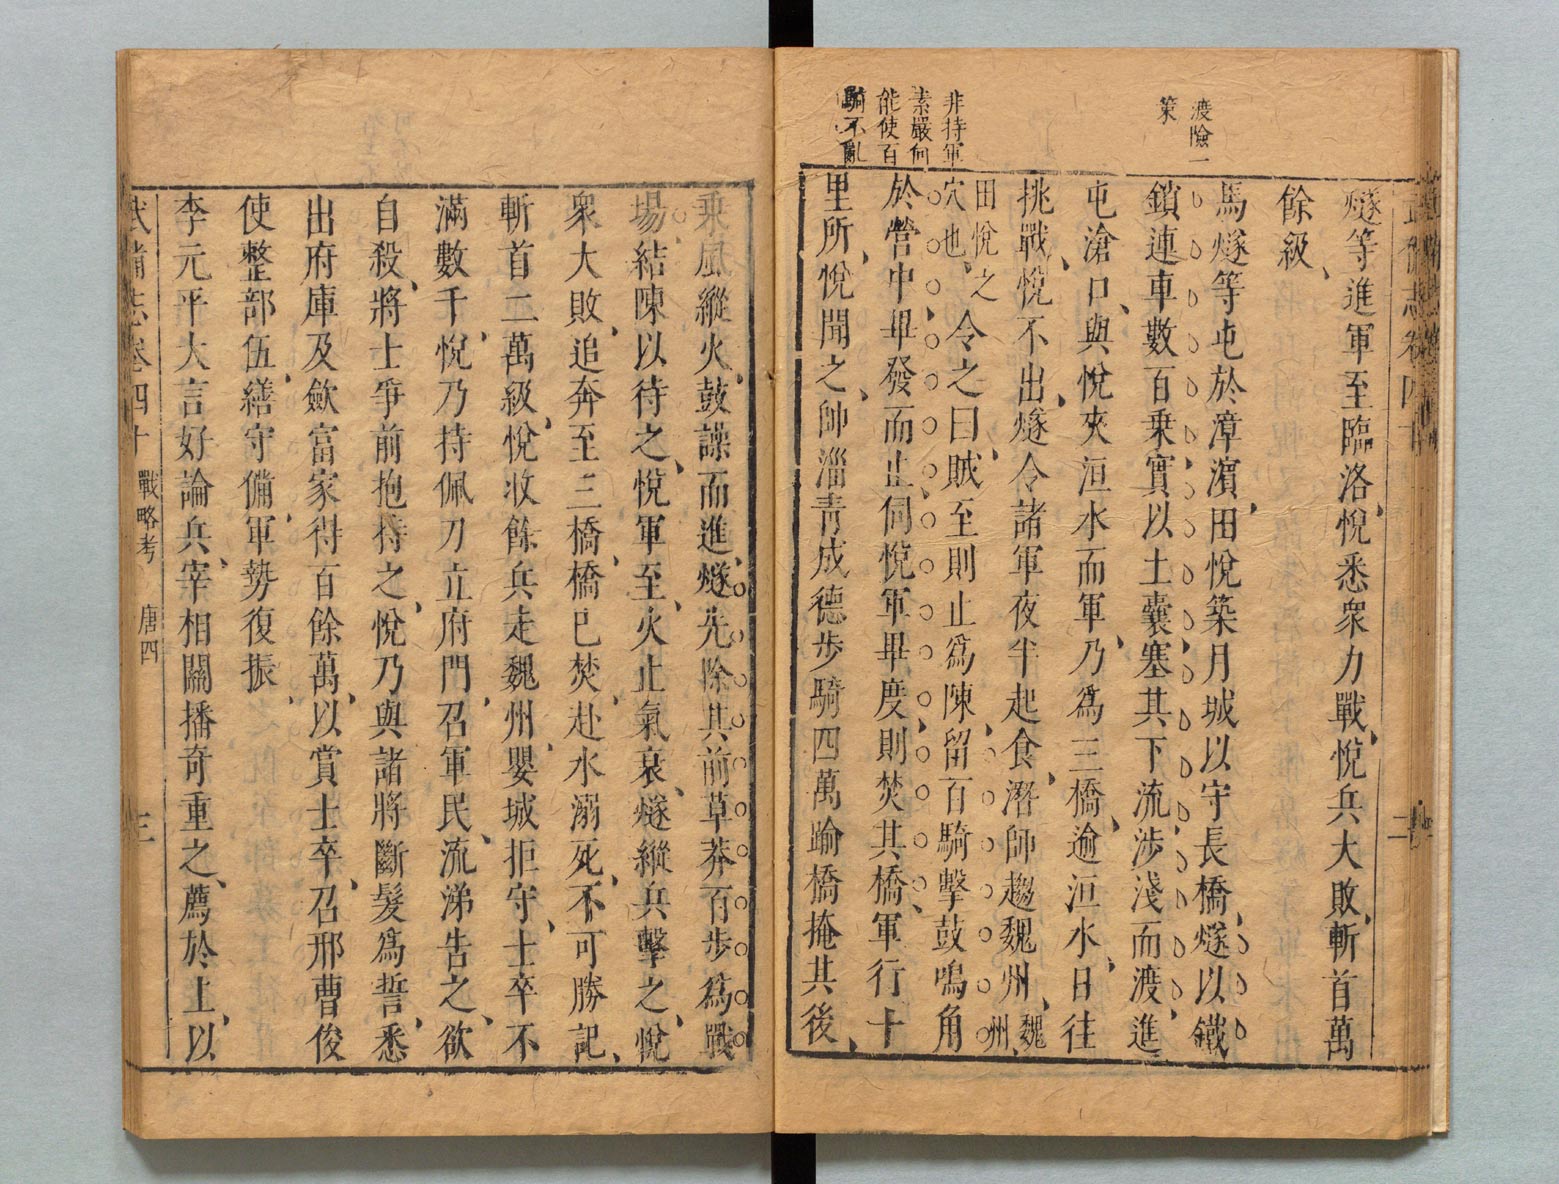 武備志卷四十
二
渡險一
策
非持軍
素嚴何
能使百
騎不亂
燧等進軍至臨洛悅悉衆力戰悅兵大敗斬首萬
餘級
馬燧等屯於漳濱田悅築月城以守長橋燧以鐵
鎖連車數百乘實以土囊塞其下流涉淺而渡進
屯滄口與悅夾洹水而軍乃爲三橋逾洹水日往
挑戰悅不出燧令諸軍夜半起食潛師趨魏州魏州
田悅之穴也令之曰賊至則止爲陳留百騎擊鼓鳴角
於營中畢發而止伺悅軍畢度則焚其橋軍行十
里所悅聞之帥淄青成德步騎四萬踰橋掩其後
乘風縱火鼓譟而進燧先除其前草莽百步爲戰
場結陳以待之悅軍至火止氣衰燧縱兵擊之悅
衆大敗追奔至三橋橋已焚赴水溺死不可勝記
斬首二萬級悅收餘兵走魏州嬰城拒守士卒不
滿數千悅乃持佩刀立府門召軍民流涕告之欲
自殺將士爭前抱持之悅乃與諸將斷髮爲誓悉
出府庫及歛富家得百餘萬以賞士卒召邢曹俊
使整部伍繕守備軍勢復振
李元平大言好論兵宰相關播奇重之薦於上以
武備志卷四十 戰略考 唐四
三